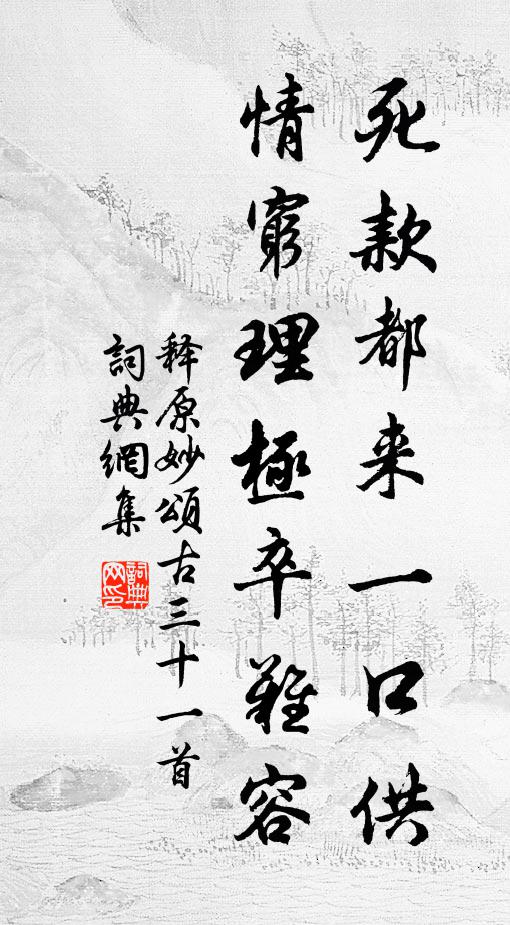 死款都来一口供
情窮理極卒難容
释原妙頌古三十一首
詞典網集
詞典网印